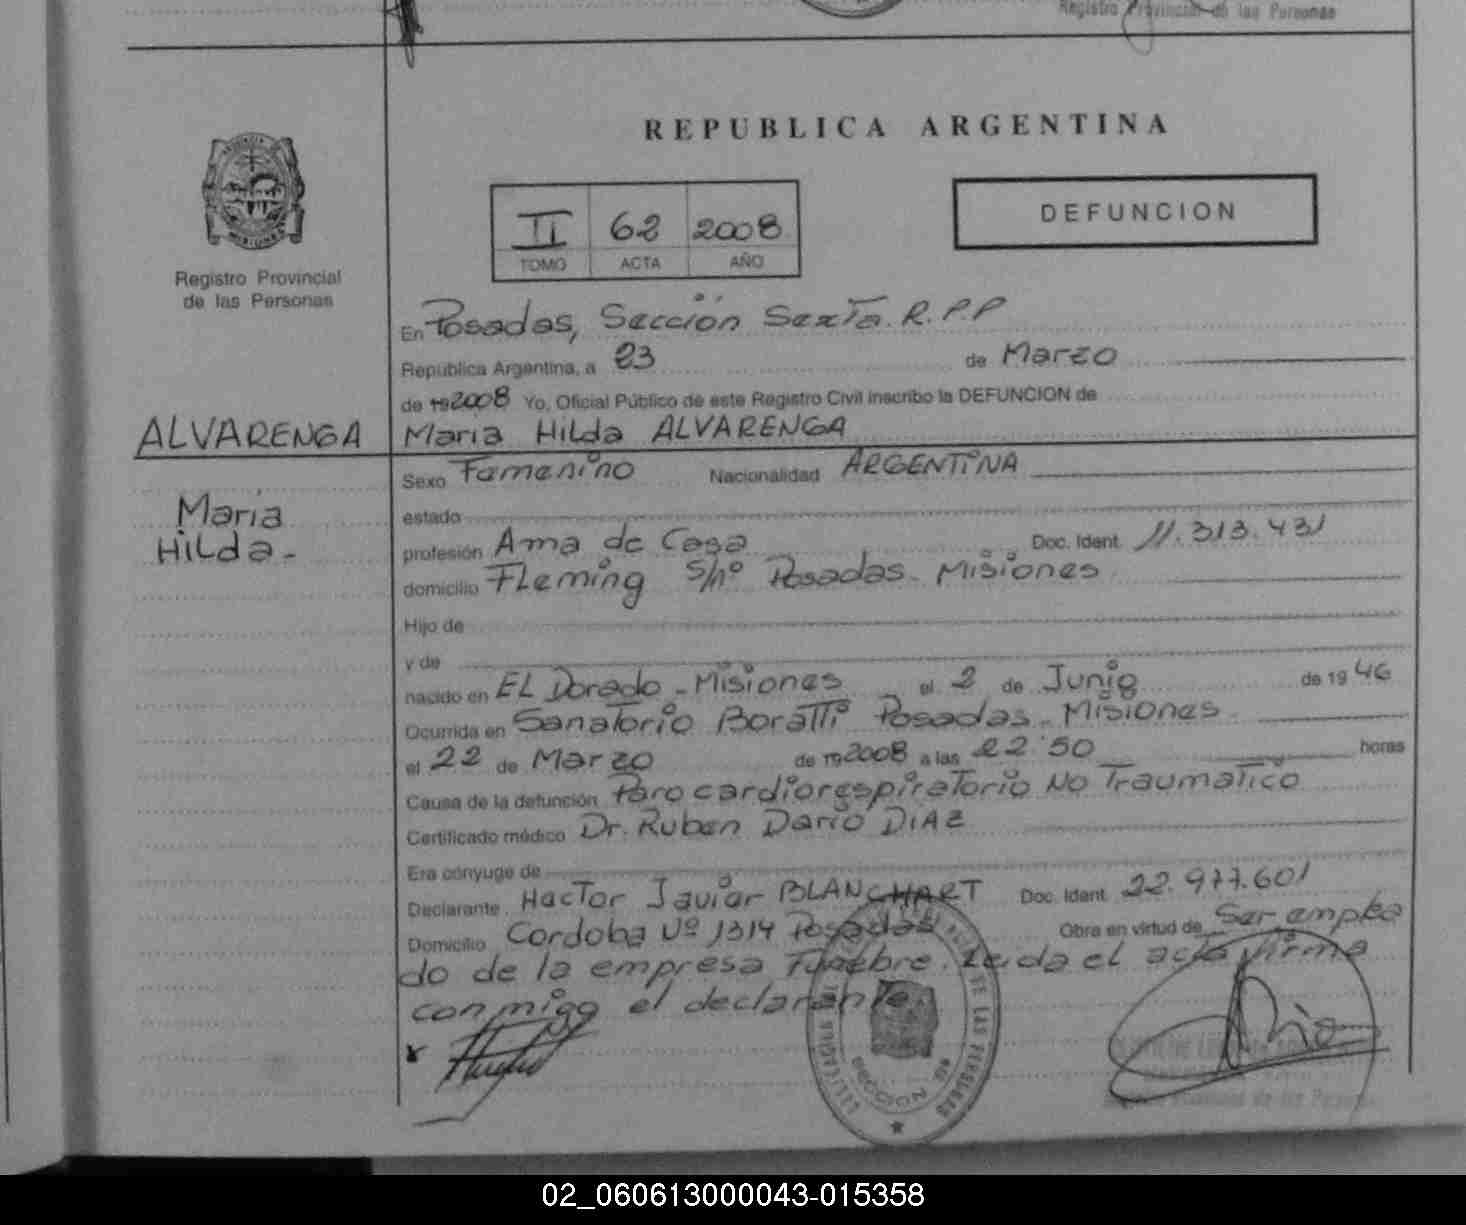 Registro Provincial de las Personas
REPUBLICA ARGENTINA
MISIONES
Registro Provincial
de las Personas
II 62 2008
TOMO ACTA AÑO
DEFUNCION
En Posadas, Sección Sexta. R.P.P
Republica Argentina, a 23 de Marzo
de 192008 Yo, Oficial Público de este Registro Civil inscribo la DEFUNCION de
ALVARENGA Maria Hilda ALVARENGA
Sexo Femenino Nacionalidad ARGENTINA
Maria
Hilda.-
estado
profesión Ama de Casa Doc. Ident. 11.313.431
domicilio Fleming S/nº Posadas. Misiones
Hijo de
y de
nacido en EL Dorado - Misiones el 2 de Junio de 19 46
Ocurrida en Sanatorio Boratti Posadas. Misiones.
el 22 de Marzo de 192008 a las 22:50 horas
Causa de la defunción Paro cardiorespiratorio No Traumatico
Certificado médico Dr. Ruben Dario DIAZ
Era cónyuge de
Declarante Hector Javier BLANCHART Doc. Ident. 22.977.601
Domicilio Cordoba Nº 1314 Posadas Obra en virtud de Ser emplea
do de la empresa Funebre. Leida el acta firma
conmigo el declarante.
DE LAS PERSONAS
SECCION 6a
02_060613000043-015358